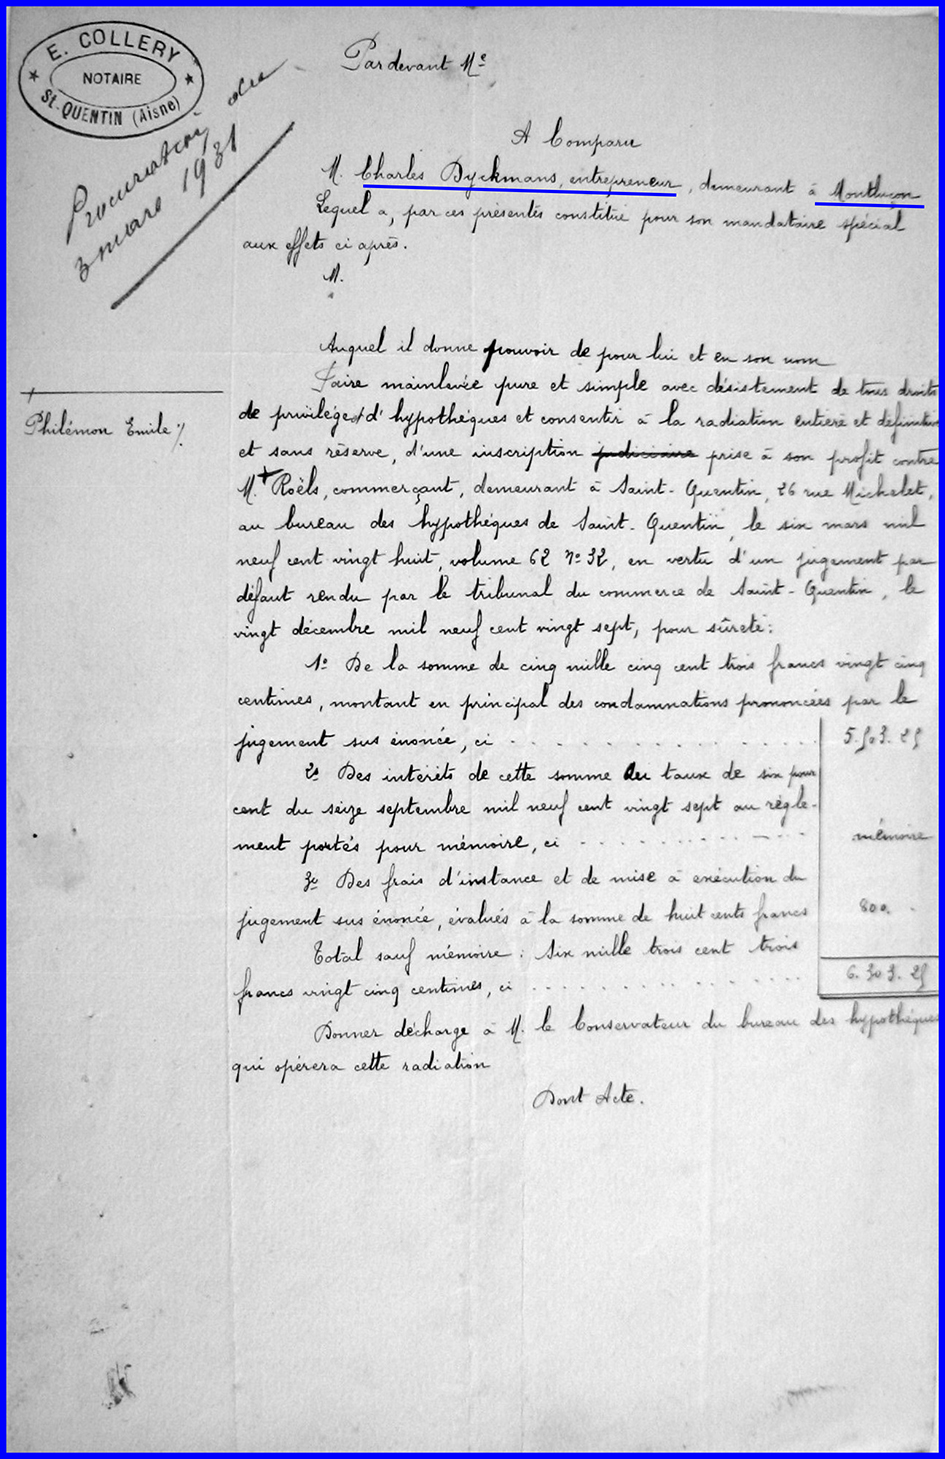 E. COLLERY
NOTAIRE
St-QUENTIN (Aisne)
Procuration du
3 mars 1931
Pardevant Me
A Comparu
M. Charles Dyckmans, entrepreneur, demeurant à Montluçon
Lequel a, par ces présentes constitué pour son mandataire spécial
aux effets ci après.
M.
Auquel il donne pouvoir de pour lui et en son nom
Faire mainlevée pure et simple avec désistement de tous droits
de privilège d'hypothèques et consentir à la radiation entière et définitive
Philémon Emile
et sans réserve, d'une inscription judiciaire prise à son profit contre
M. Roëls, commerçant, demeurant à Saint-Quentin, 26 rue Michelet,
au bureau des hypothèques de Saint-Quentin, le six mars mil
neuf cent vingt huit, volume 62 No 32, en vertu d'un jugement par
défaut rendu par le tribunal du commerce de Saint-Quentin, le
vingt décembre mil neuf cent vingt sept, pour sûreté:
1o De la somme de cinq mille cinq cent trois francs vingt cinq
centimes, montant en principal des condamnations prononcées par le
jugement sus énoncé, ci . . . . . . . . . . . . . . 5.503.25
2o Des intérêts de cette somme au taux de six pour
cent du seize septembre mil neuf cent vingt sept au règle-
ment portés pour mémoire, ci . . . . . . . . . . mémoire
3o Des frais d'instance et de mise à exécution du
jugement sus énoncé, évalués à la somme de huit cents francs 800. .
Total sauf mémoire : Six mille trois cent trois
francs vingt cinq centimes, ci . . . . . . . . . . . . . 6.303.25
Donner décharge à M. le Conservateur du bureau des hypothèques
qui opérera cette radiation
Dont Acte.